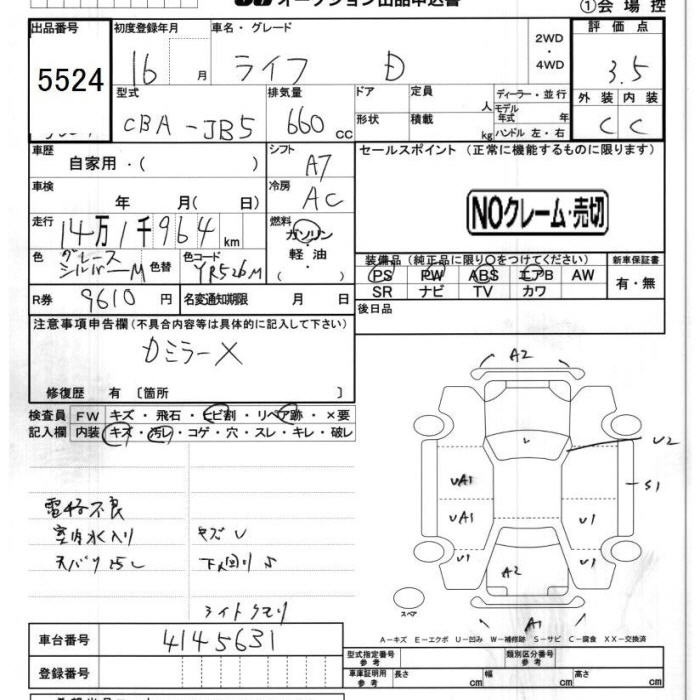 オークション出品申込書
①会場控
出品番号 初度登録年月 車名・グレード 2WD・4WD 評価点
5524 16 月 ライフ D 3.5
型式 排気量 ドア 定員 人 ディーラー・並行 外装 内装
CBA-JB5 660 cc 形状 積載 kg モデル年式 年 ハンドル 左・右 C C
車歴 シフト セールスポイント (正常に機能するものに限ります)
自家用・( ) A7
車検 冷房
年 月( 日) AC
NOクレーム・売切
走行 燃料
14万1千964km ガソリン・軽油・( )
色 色替 色コード 装備品 (純正品に限り○をつけてください) 新車保証書
グレースシルバーM YR526M PS PW ABS エアB AW 有・無
SR ナビ TV カワ
R券 9610円 名変通知期限 月 日 後日品
注意事項申告欄(不具合内容等は具体的に記入して下さい)
DミラーX
修復歴 有 〔箇所 〕
検査員 FW キズ・飛石・ヒビ割・リペア跡・×要
記入欄 内装 キズ・汚レ・コゲ・穴・スレ・キレ・破レ
A2
U2
UA1
S1
UA1 U1
電格不良
室内水入り キズU
U1 U1
下回りS
A2
ライトクモリ
スペア
A1
A-キズ E-エクボ U-凹み W-補修跡 S-サビ C-腐食 XX-交換済
車台番号 4145631
型式指定番号 参考 類別区分番号 参考
登録番号 車庫証明用 参考 長さ cm 幅 cm 高さ cm